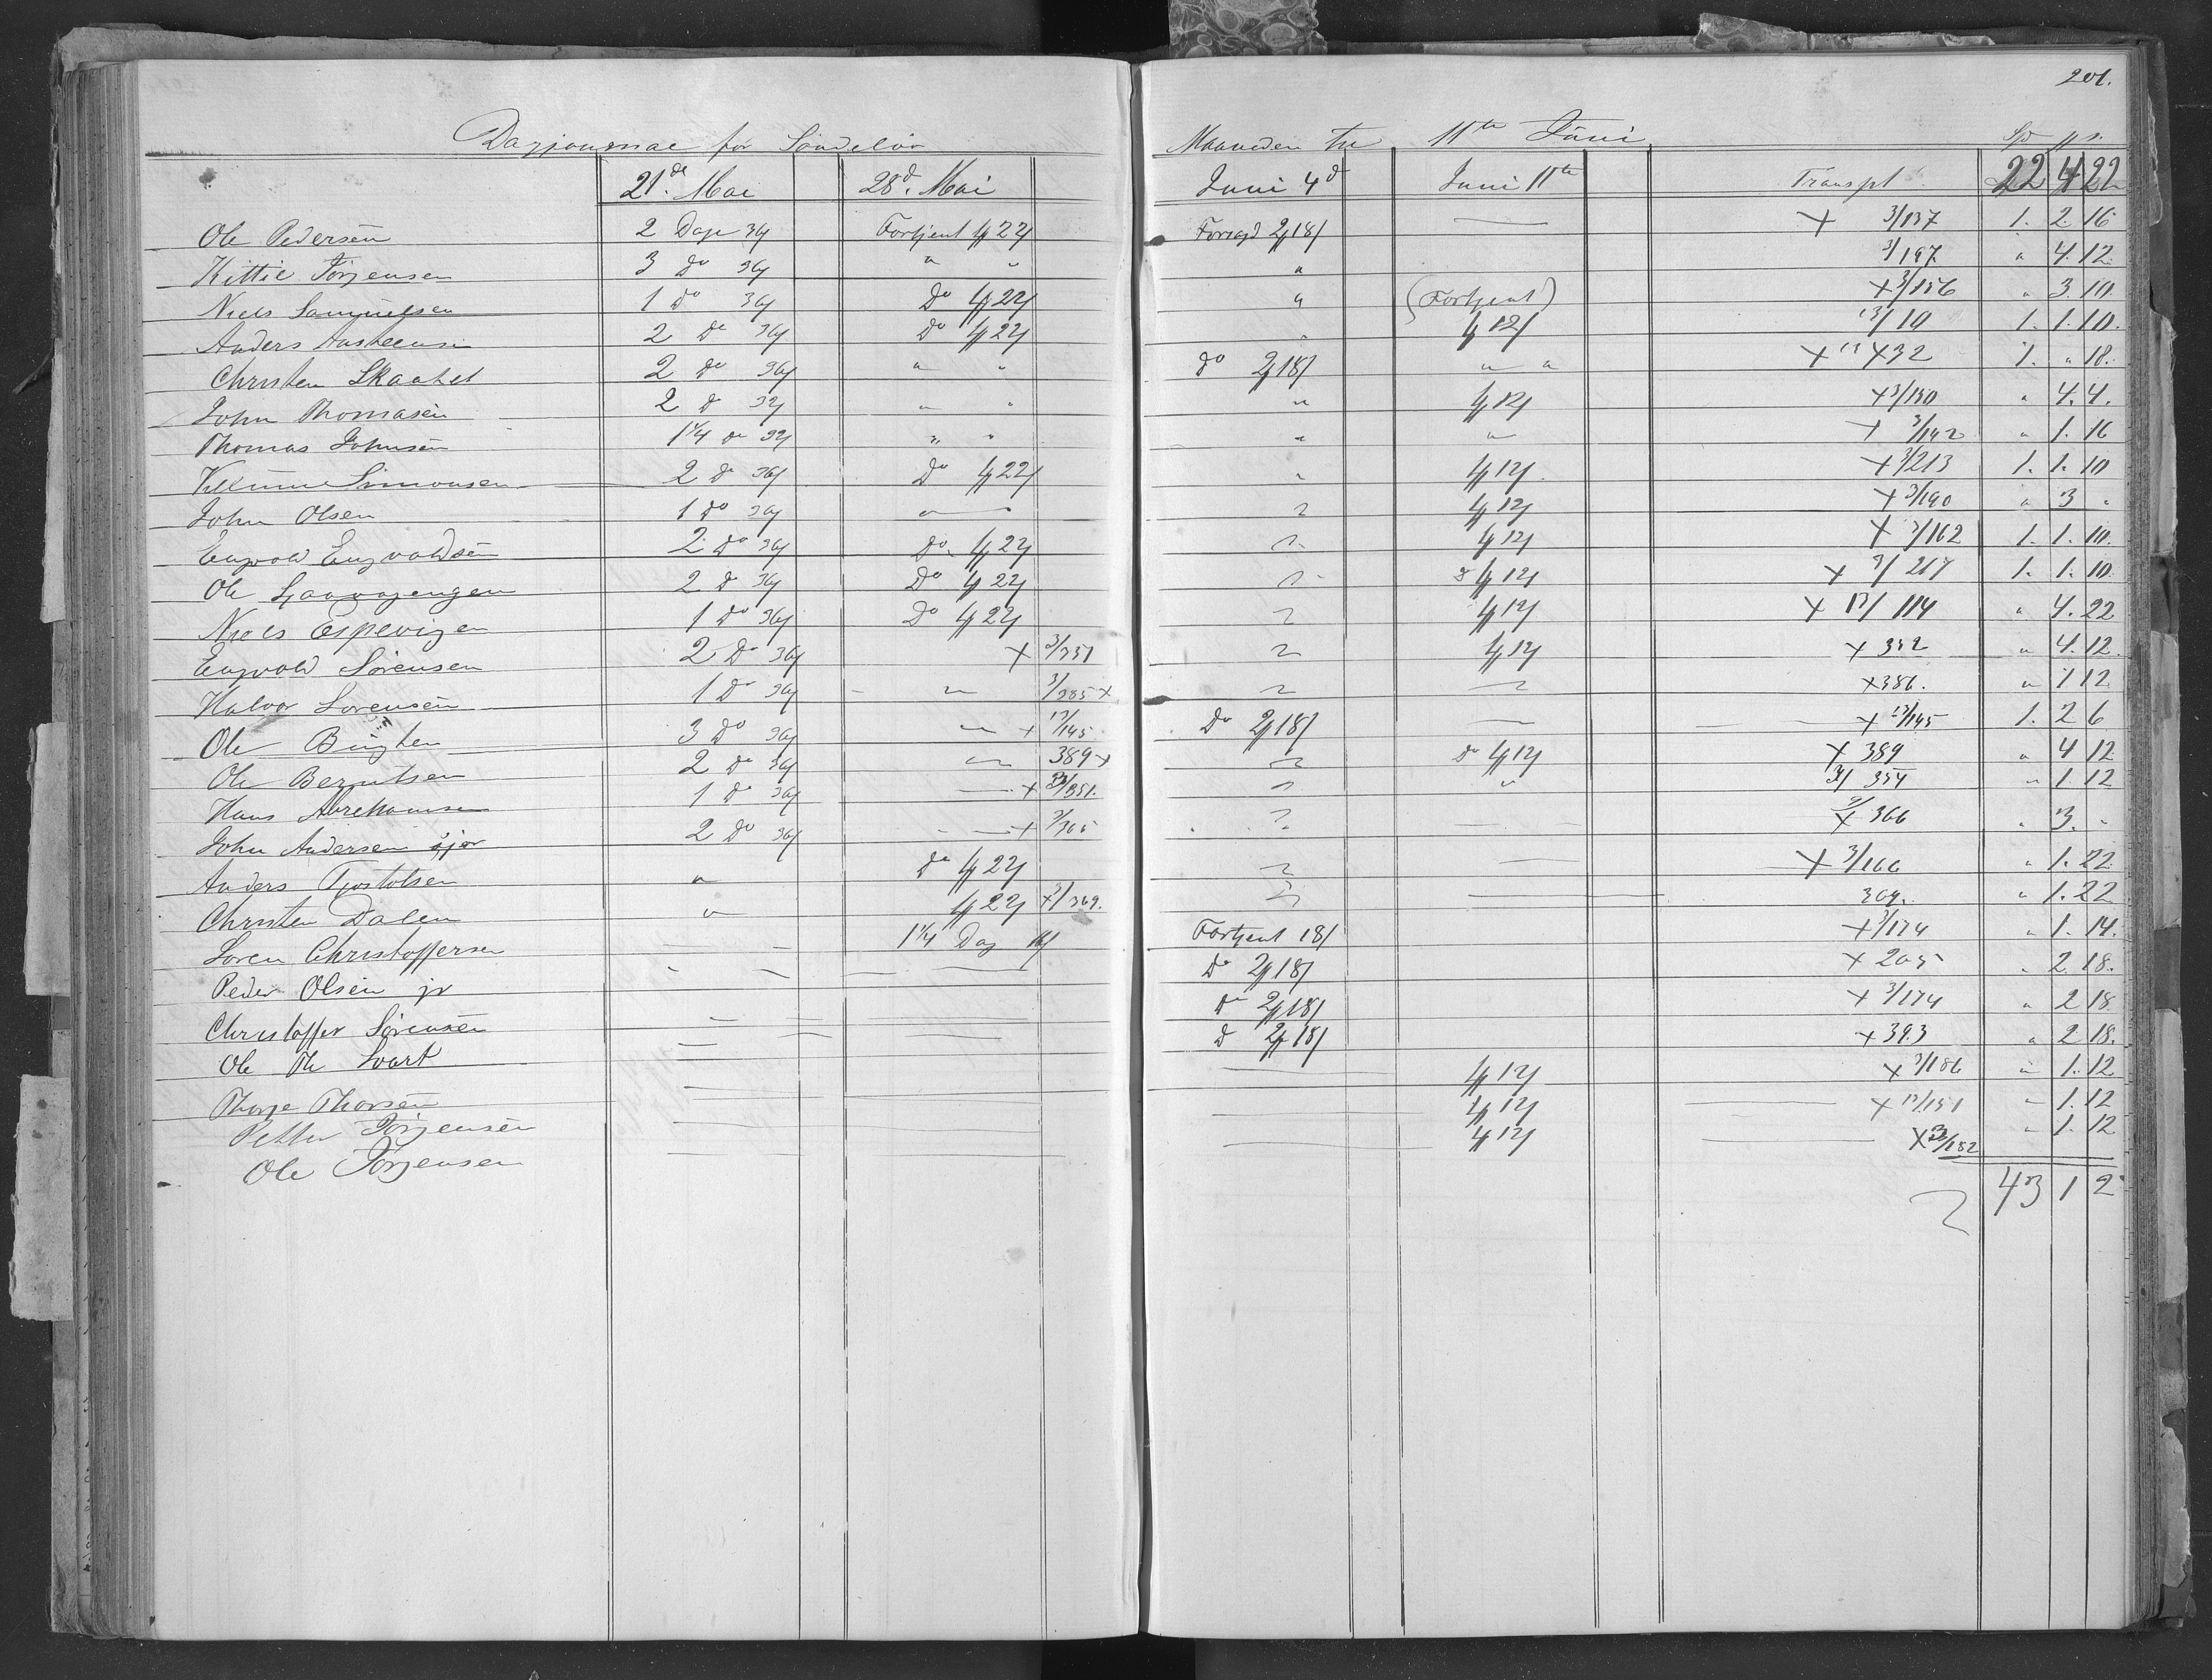 201.
Dagjournal for Søndeløv Maaneden til 11te Juni Sp
21de Mai 28d. Mai Juni 4d Juni 11te Transpt 22 4 22
Ole Pedersen 2 Dage 36 Fortjent 1 22 2 18 — × 3/137 1. 2 16
Kittil Jörgensen 3 do 36 " " " 3/197 " 4. 12.
Niels Samuelsen 1 do 36 Do 1 22 " (Fortjent) × 3/156 " 3. 10
Anders 2 do 36 Do 1 22 " 1 12 13/10 1. 1. 10.
Christen Skaatel 2 do 36 " " do 2 18 " " × 13 432 1. " 18.
John Thomasen 2 d " " " 1 12 × 3/150 " 4. 4.
Thomas Johnsen 1 1/4 do " " " " × 3/142 " 1. 16
Simonsen 2 do 36 Do 1 22 " 1 12 × 3/213 1. 1. 10
John Olsen 1 do 36 " " " 1 12 × 3/190 " 3 "
Engvold Engvoldsen 2 do 36 Do 1 22 " 1 12 × 3/162 1. 1. 10.
Ole 2 do 36 Do 1 22 " 1 12 × 3/217 1. 1. 10
Niels Espevigen 1 do 36 Do 1 22 " 1 12 × 13/114 " 4. 22
Engvold Sörensen 2 Do 36 × 3/351 " 1 12 × 352 " 4. 12.
Halvor Sorensen 1 Do 36 " 3/385 × " " × 386. " 1 12
Ole 3 Do 36 " × 13/145 Do 2 18 — × 13/145 1. 2 6
Ole Berntsen 2 do 36 " 389 × " do 1 12 × 389 " 4 12
Hans Abrehamsen 1 do 36 — × 3/351. " " 3/ 354 " 1. 12
John Andersen 2 Do 36 — × 3/365 " 3/ × 366 " 3. "
Anders Tjostolsen " do 1 22 " — × 3/166 " 1. 22
Christen Dalen " 1 22 × 3/369. " — 369. " 1. 22
Soren Christoffersen — 1 1/4 Dag Fortjent 18 × 3/174 " 1. 14.
Peder Olsen jr — — Do 2 18 × 205 " 2. 18.
Christoffer Sörensen — — do 2 18 × 3/174 " 2 18
Ole Th Svart — — d 2 18 × 393 " 2 18.
Thorje Thorsen — — — 1 12 × 3/186 " 1. 12
Petter Jörgensen — — — 1 12 — × 13/151 " 1. 12
Ole Jörgensen — — — 1 12 — × 13/152 " 1. 12
43 1 2